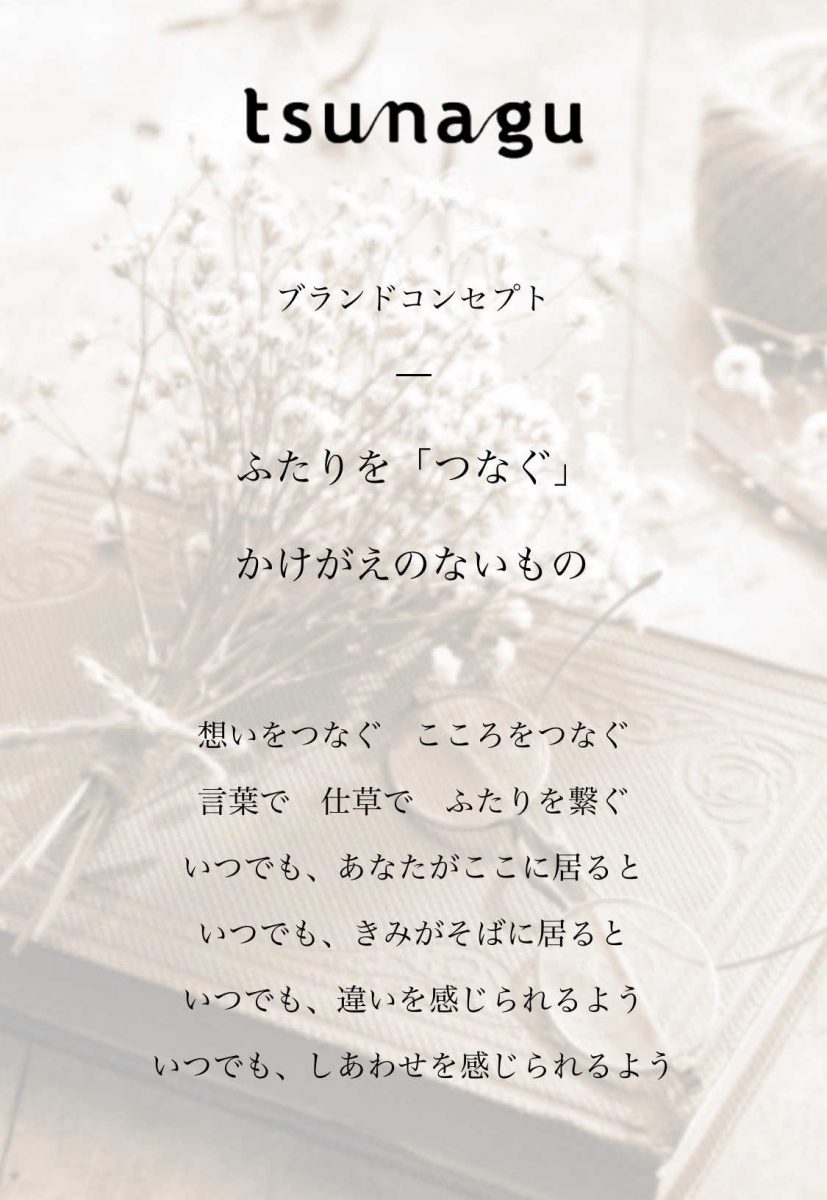 tsunagu
ブランドコンセプト
ふたりを「つなぐ」
かけがえのないもの
想いをつなぐ　こころをつなぐ
言葉で　仕草で　ふたりを繋ぐ
いつでも、あなたがここに居ると
いつでも、きみがそばに居ると
いつでも、違いを感じられるよう
いつでも、しあわせを感じられるよう